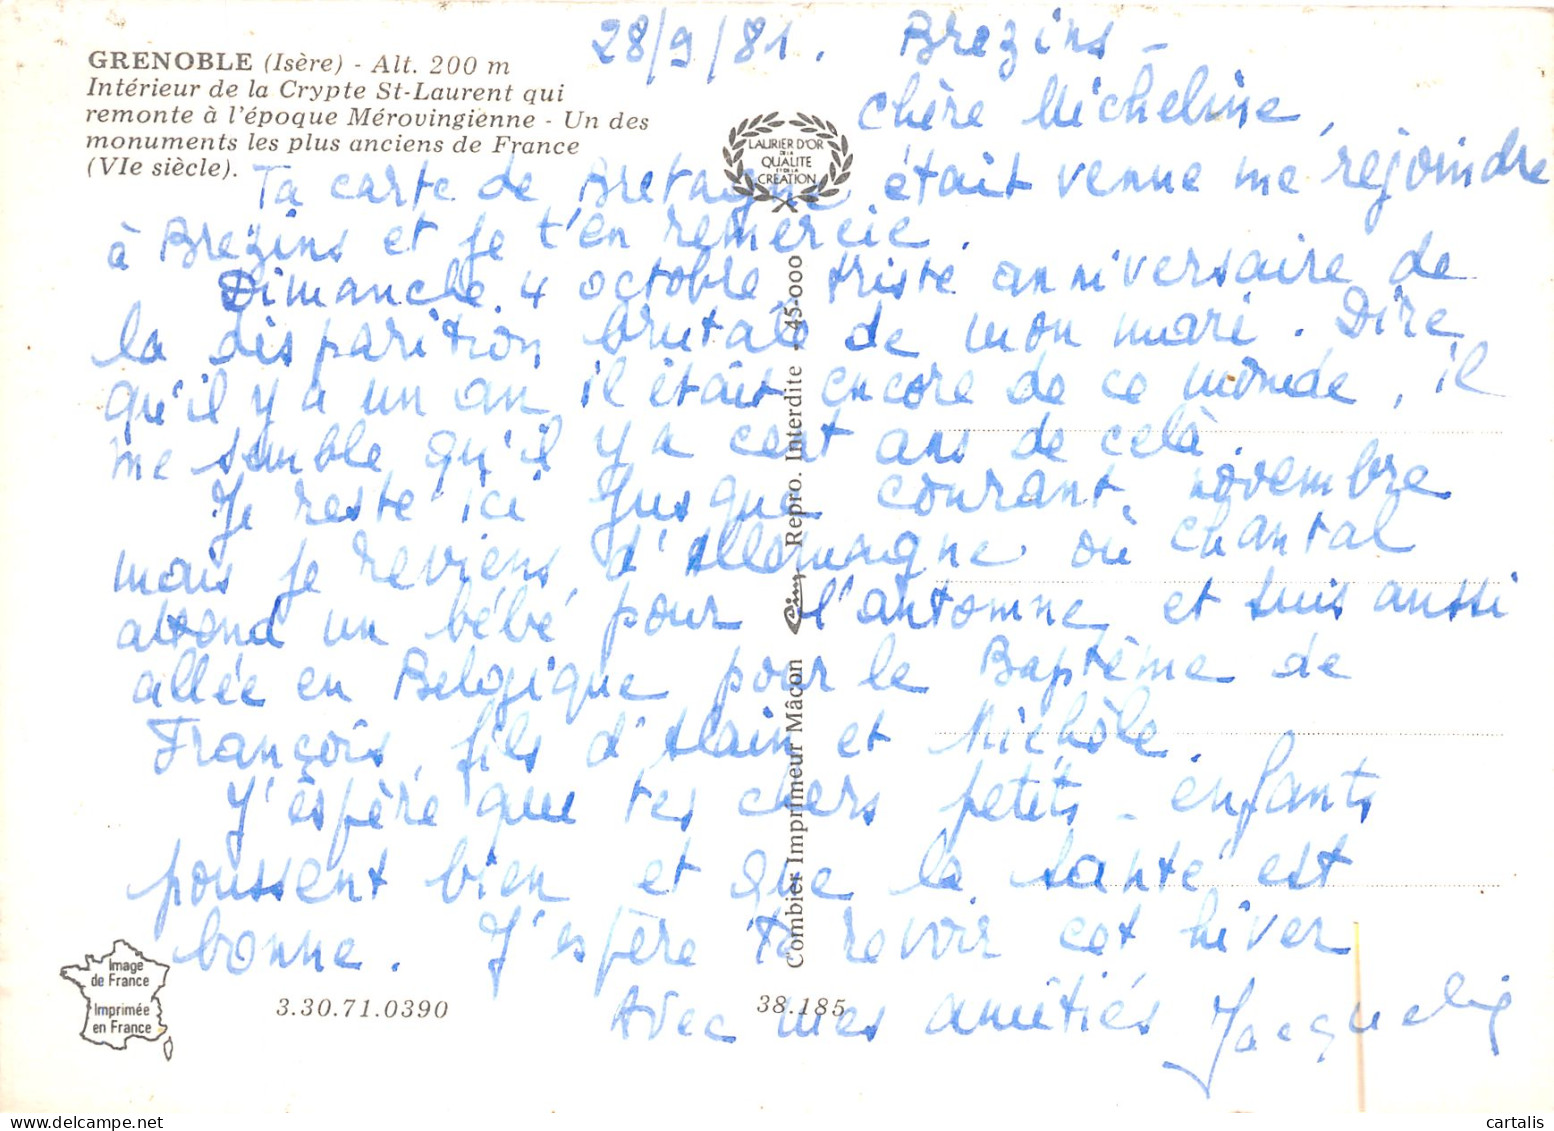 28/9/81. Brezins -
GRENOBLE (Isère) - Alt. 200 m
Intérieur de la Crypte St-Laurent qui
remonte à l'époque Mérovingienne - Un des
monuments les plus anciens de France
(VIe siècle).
LAURIER D'OR
DE LA
QUALITE
ET DE LA
CREATION
Chère Micheline,
Ta carte de Bretagne était venue me rejoindre
à Brezins et je t'en remercie.
Dimanche 4 octobre, triste anniversaire de
la disparition brutale de mon mari. Dire
qu'il y a un an il était encore de ce monde, il
me semble qu'il y a cent ans de celà.
Je reste ici jusque courant novembre
mais je reviens d'Allemagne où Chantal
attend un bébé pour l'automne et suis aussi
allée en Belgique pour le Baptême de
François, fils d'Alain et Michèle.
J'espère que tes chers petits-enfants
poussent bien et que la santé est
bonne. J'espère te revoir cet hiver
Avec mes amitiés Jacqueline
Combier Imprimeur Mâcon Cim Repro. Interdite 45-000
Image
de France
Imprimée
en France
3.30.71.0390
38.185
cartalis